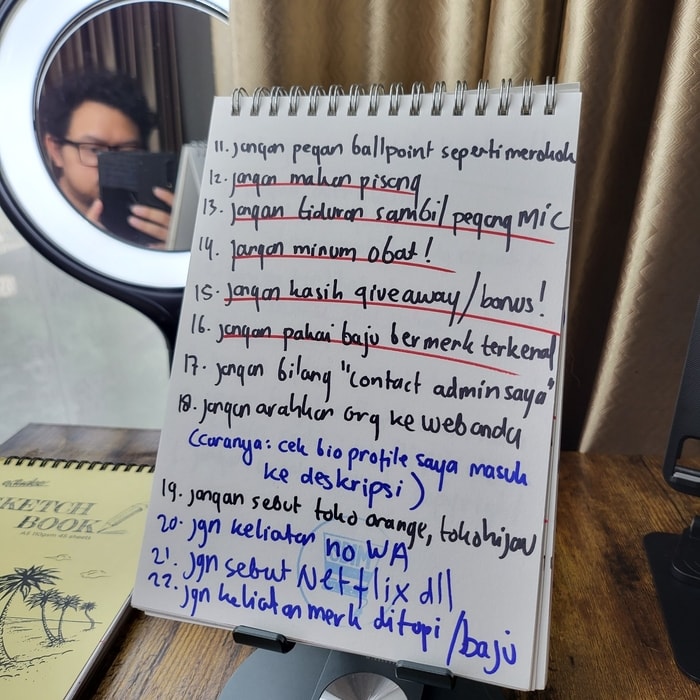 11. jangan pegan ballpoint seperti merokok
12. jangan makan pisang
13. jangan tiduran sambil pegang MIC
14. jangan minum obat!
15. jangan kasih giveaway/bonus!
16. jangan pakai baju bermerk terkenal
17. jangan bilang "contact admin saya"
18. jangan arahkan org ke web anda
(caranya: cek bio profile saya masuk
ke deskripsi)
19. jangan sebut toko orange, toko hijau
20. jgn keliatan no WA
21. jgn sebut Netflix dll
22. jgn keliatan merk di topi/baju
SKETCH
BOOK